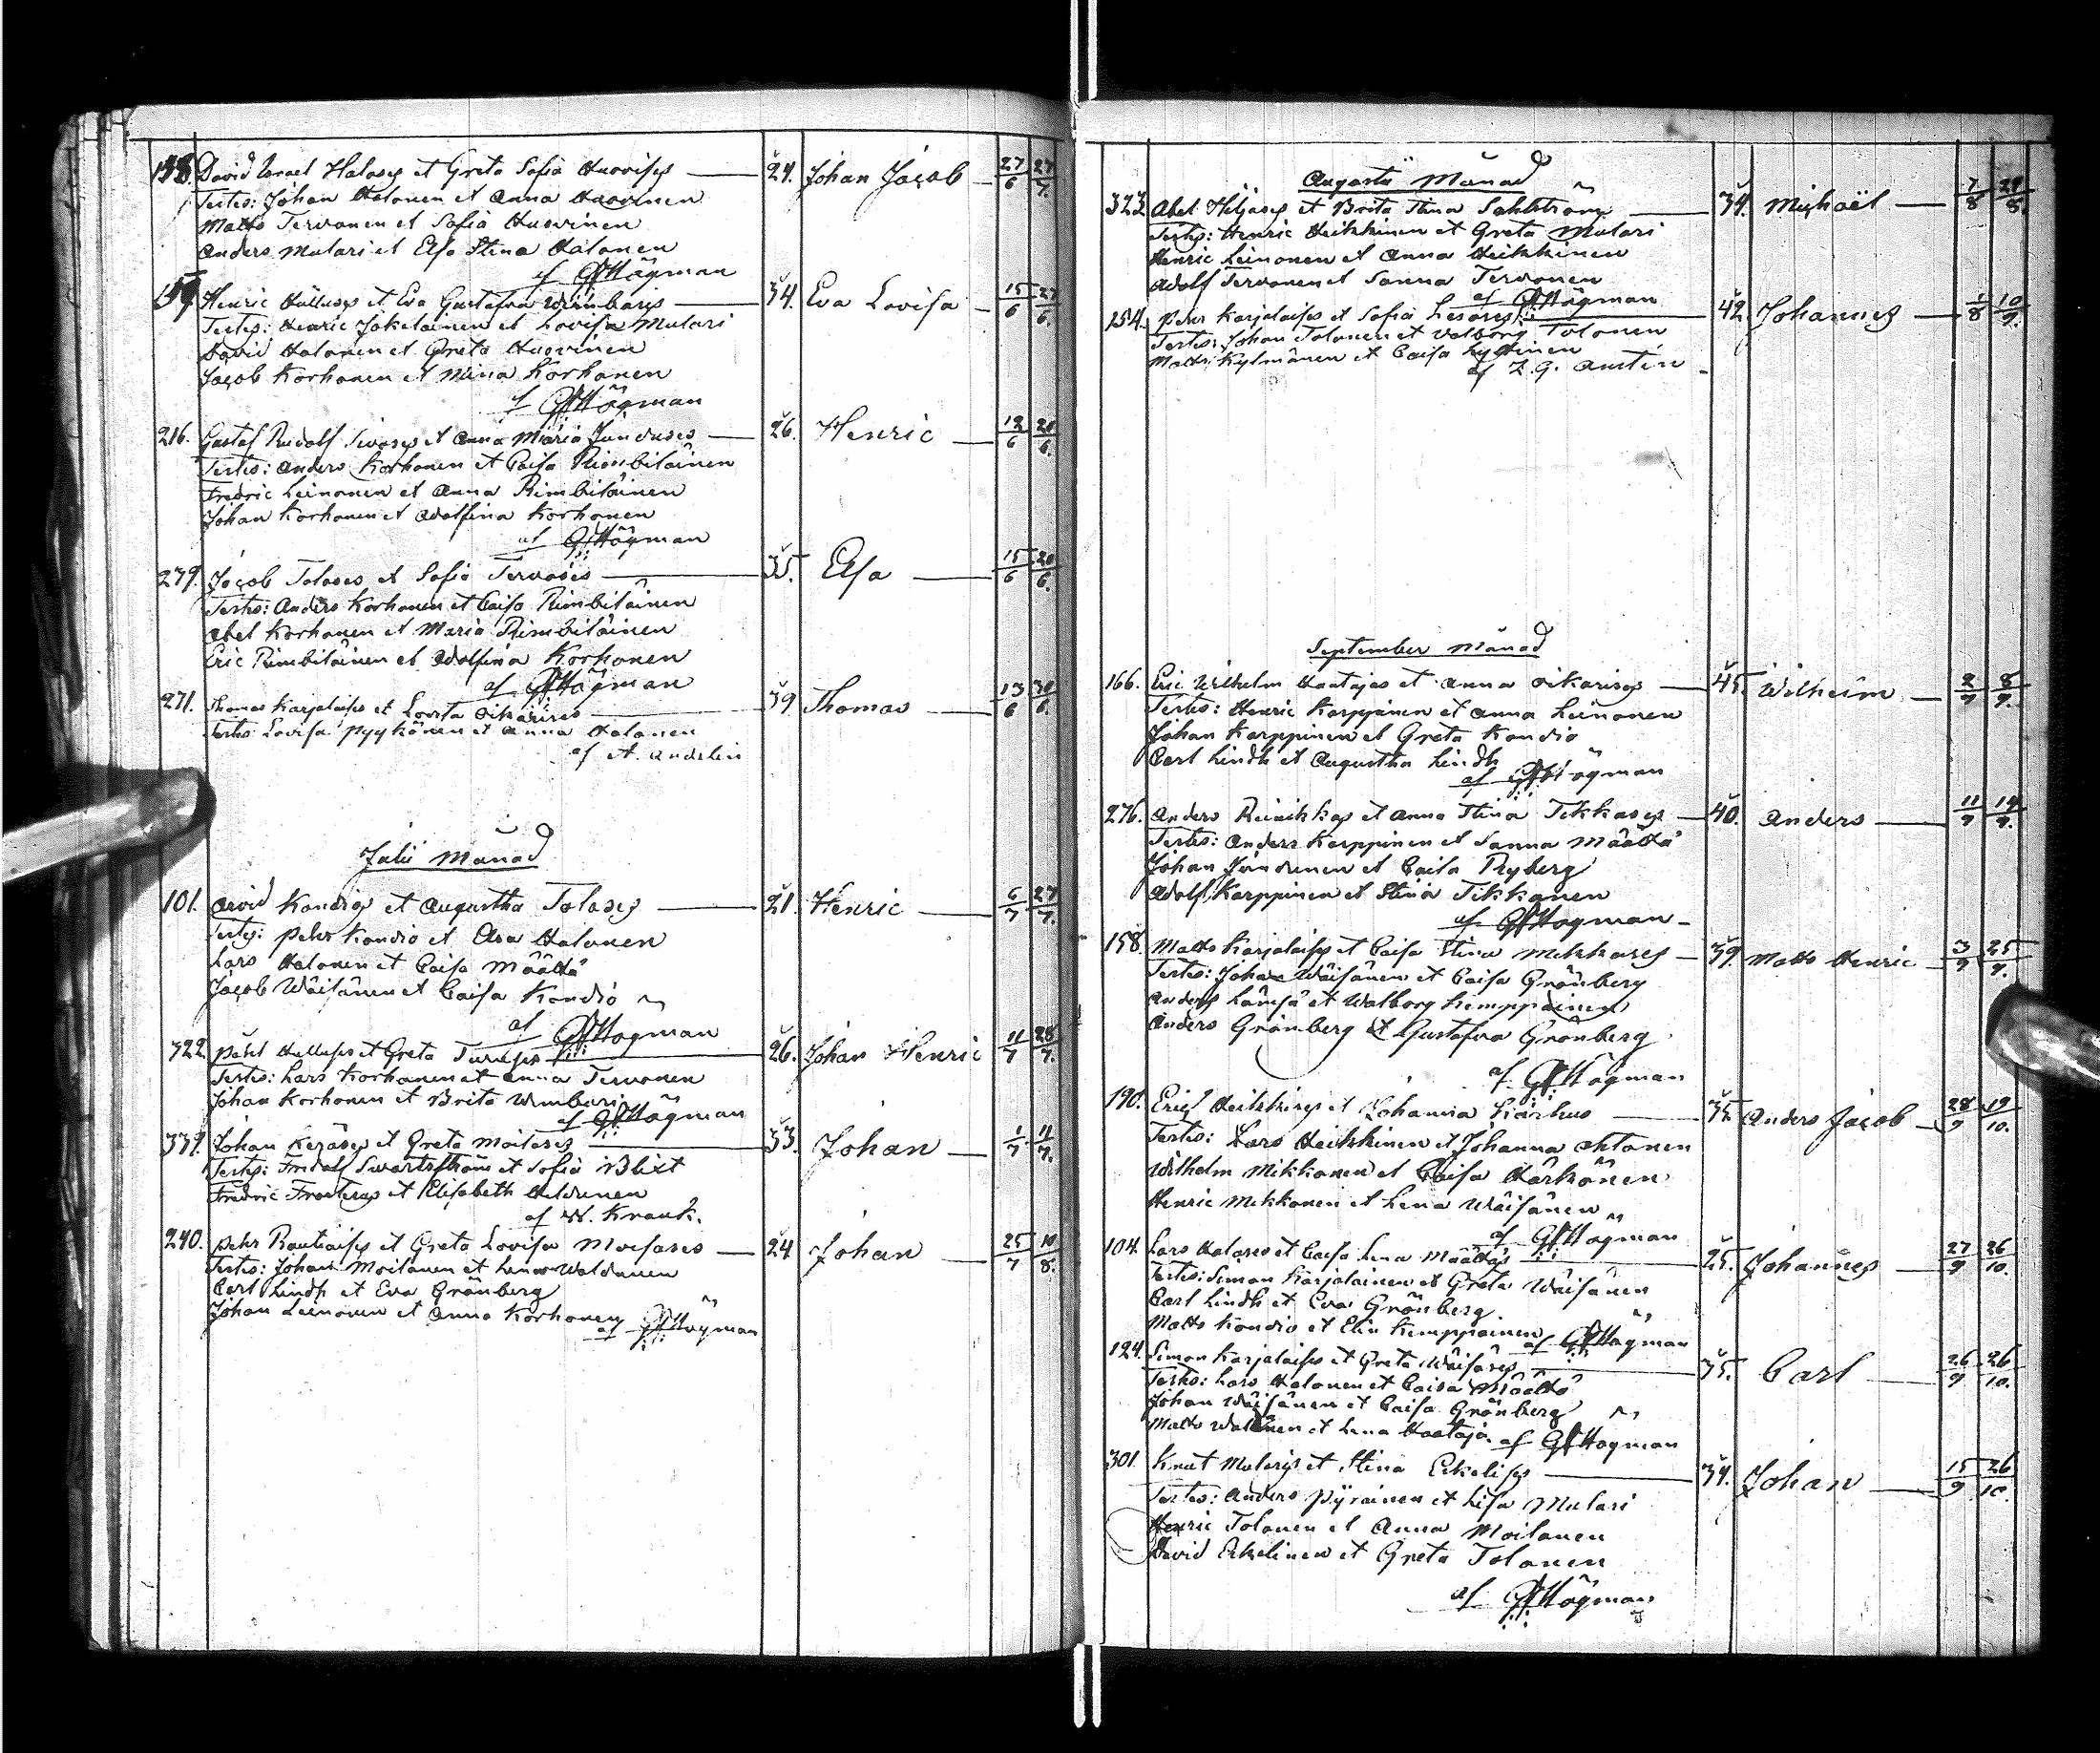 138. David Israel Halosey et Greta Sofia Huovisey — 24. Johan Jacob — 27/6 27/7.
Testes: Johan Halonen et Anna Huovinen
Matts Tervonen et Sofia Huovinen
Anders Mulari et Elsa Stina Halonen
af GFHögman
Henric et Eva Gustafva Wimbaris — 34. Eva Lovisa — 15/6 27/6.
Testes: Henric Jokelainen et Lovisa Mulari
David Halonen et Greta Huovinen
Jacob Korhonen et Mina Korhonen
af GFHögman
216. Gustaf Rudolf et Anna Maria — 26. Henric — 12/6 20/6.
Testes: Anders Korhonen et Caisa Rimbiläinen
Fredric Leinonen et Anna Rimbiläinen
Johan Korhonen et Adolfina Korhonen
af GFHögman
279. Jacob Toloses et Sofia Tervoses — 35. Elsa — 15/6 20/6.
Testes: Anders Korhonen et Caisa Rimbiläinen
Abel Korhonen et Maria Rimbiläinen
Eric Rimbiläinen et Adolfina Korhonen
af GFHögman
271. Thomas Karjalaises et Lovisa Oikarises — 39 Thomas — 13/6 30/6.
Testes: Lovisa Pyykönen et Anna Halonen
af A. Andelin
Julii Månad
101. Arvid Kondios et Augustha Tolosey — 21. Henric — 6/7 27/7.
Testes: Pehr Kondio et Halonen
Lars Halonen et Caisa Määttä
Jacob Wäisänen et Caisa Kondio
af GFHögman
322. Pehr et Greta — 26. Johan Henric 11/7 28/7.
Testes: Lars Korhonen et Anna Tervonen
Johan Korhonen et Brita Wimbari
af GFHögman
339. Johan Keräsey et Greta Moilases — 33. Johan — 1/7 11/7.
Testes: Fridolf Swartsström et Sofia Blixt
Fredric et Elisabeth
af W. Krank.
240. Pehr Rautiaises et Greta Lovisa Moilases — 24 Johan — 25/7 10/8.
Testes: Johan Moilanen et Lena
Carl Lindh et Eva Grönberg
Johan Leinonen et Anna Korhonen af GFHögman
Augusti Månad
323. Abel et Brita Stina Sahlström — 34. Michaël — 7/8 29/8.
Testes: Henric Heikkinen et Greta Mulari
Henric Leinonen et Anna Heikkinen
Adolf Tervonen et Sanna Tervonen
af GFHögman
154. Pehr Karjalaises et Sofia — 42 Johannes — 1/8 10/9.
Testes: Johan Tolonen et Valborg Tolonen
Matts Kylmänen et Caisa Hyttinen
af Z. G. Austén
September Månad
166. Eric Wilhelm Haatajas et Anna Oikarises — 45. Wilhelm — 2/9 8/9.
Testes: Henric Karppinen et Anna Leinonen
Johan Karppinen et Greta Kondio
Carl Lindh et Augustha Lindh
af GFHögman
276. Anders Reinikkas et Anna Stina Tikkases — 40. Anders — 11/9 14/9.
Testes: Anders Karppinen et Sanna Määttä
Johan Jundunen et Caisa Ryberg
Adolf Karppinen et Stina Tikkanen
af GFHögman
158. Matts Karjalaises et Caisa Stina Mikkases — 39. Matts Henric — 3/9 25/9.
Testes: Johan Wäisänen et Caisa Grönberg
Anders Länsjä et Walborg Kemppainen
Anders Grönberg et Gustafva Grönberg
af GFHögman
190. Eric Heikkises et Johanna — 35 Anders Jacob — 28/9 19/10.
Testes: Lars Heikkinen et Johanna Ahtonen
Wilhelm Mikkonen et Caisa Härkönen
Henric Mikkonen et Lena Wäisänen
af GFHögman
104. Lars Haloses et Caisa Lena Määttäs — 25. Johannes — 27/9 26/10.
Testes: Simon Karjalainen et Greta Wäisänen
Carl Lindh et Eva Grönberg
Matts Kondio et Elin Kemppainen af GFHögman
124. Simon Karjalaises et Greta Wäisäses — 35. Carl — 26/9 26/10.
Testes: Lars Halonen et Caisa Määttä
Johan Wäisänen et Caisa Grönberg
Matts et Lena Haataja af GFHögman
301. Knut Mularis et Stina Eskelises — 34. Johan — 15/9 26/10.
Testes: Anders Pyrainen et Lisa Mulari
Henric Tolonen et Anna Moilanen
David Eskelinen et Greta Tolonen
af GFHögman